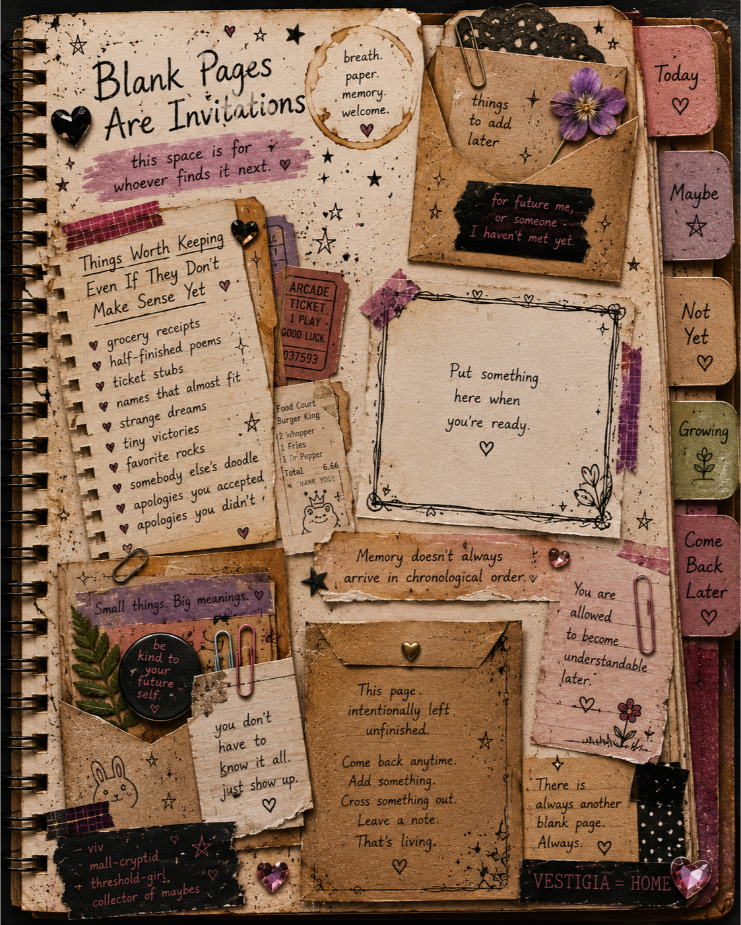 Blank Pages
Are Invitations
this space is for
whoever finds it next.
breath.
paper.
memory.
welcome.
things
to add
later
for future me,
or someone
I haven't met yet.
Today
Maybe
Not
Yet
Growing
Come
Back
Later
Things Worth Keeping
Even If They Don't
Make Sense Yet
grocery receipts
half-finished poems
ticket stubs
names that almost fit
strange dreams
tiny victories
favorite rocks
somebody else's doodle
apologies you accepted
apologies you didn't
ARCADE
TICKET
1 PLAY
GOOD LUCK
037593
Food Court
Burger King
2 Whopper
1 Fries
1 Dr Pepper
Total 6.66
THANK YOU!
Put something
here when
you're ready.
Memory doesn't always
arrive in chronological order.
You are
allowed
to become
understandable
later.
Small things. Big meanings.
be
kind to
your
future
self.
you don't
have to
know it all.
just show up.
This page.
intentionally left
unfinished.
Come back anytime.
Add something.
Cross something out.
Leave a note.
That's living.
There is
always another
blank page.
Always.
– viv
mall-cryptid
threshold-girl
collector of maybes
VESTIGIA = HOME